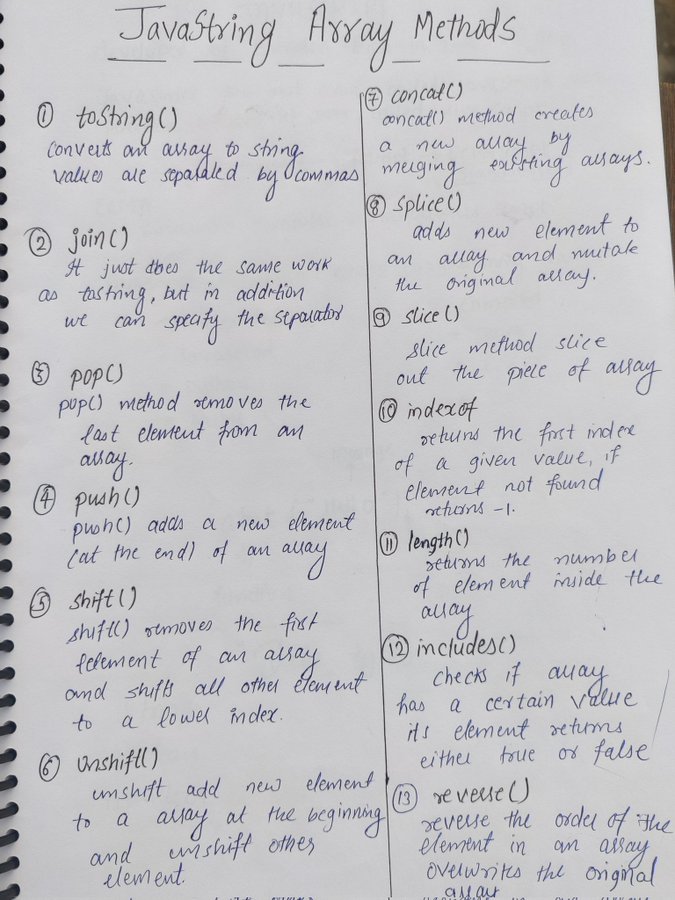 JavaString Array Methods
① toString()
converts an array to string
values are separated by commas
② join()
It just does the same work
as tostring, but in addition
we can specify the separator
③ pop()
pop() method removes the
last element from an
array.
④ push()
push() adds a new element
(at the end) of an array
⑤ shift()
shift() removes the first
element of an array
and shifts all other element
to a lower index.
⑥ unshift()
unshift add new element
to a array at the beginning
and unshift other
element.
⑦ concat()
concat() method creates
a new array by
merging existing arrays.
⑧ splice()
adds new element to
an array and mutate
the original array.
⑨ slice()
slice method slice
out the piece of array
⑩ indexof
returns the first index
of a given value, if
element not found
returns -1.
⑪ length()
returns the number
of element inside the
array
⑫ includes()
checks if array
has a certain value
its element returns
either true or false
⑬ reverse()
reverse the order of the
element in an array
overwrites the original
array